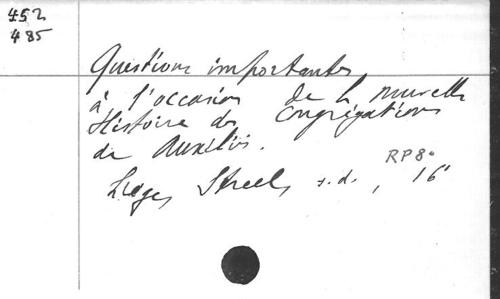 452
485
Questions importantes
à l'occasion de la nouvelle
Histoire des Congrégations
de Auxiliis.
RP8°
Liège, Streel, s.d., 16°